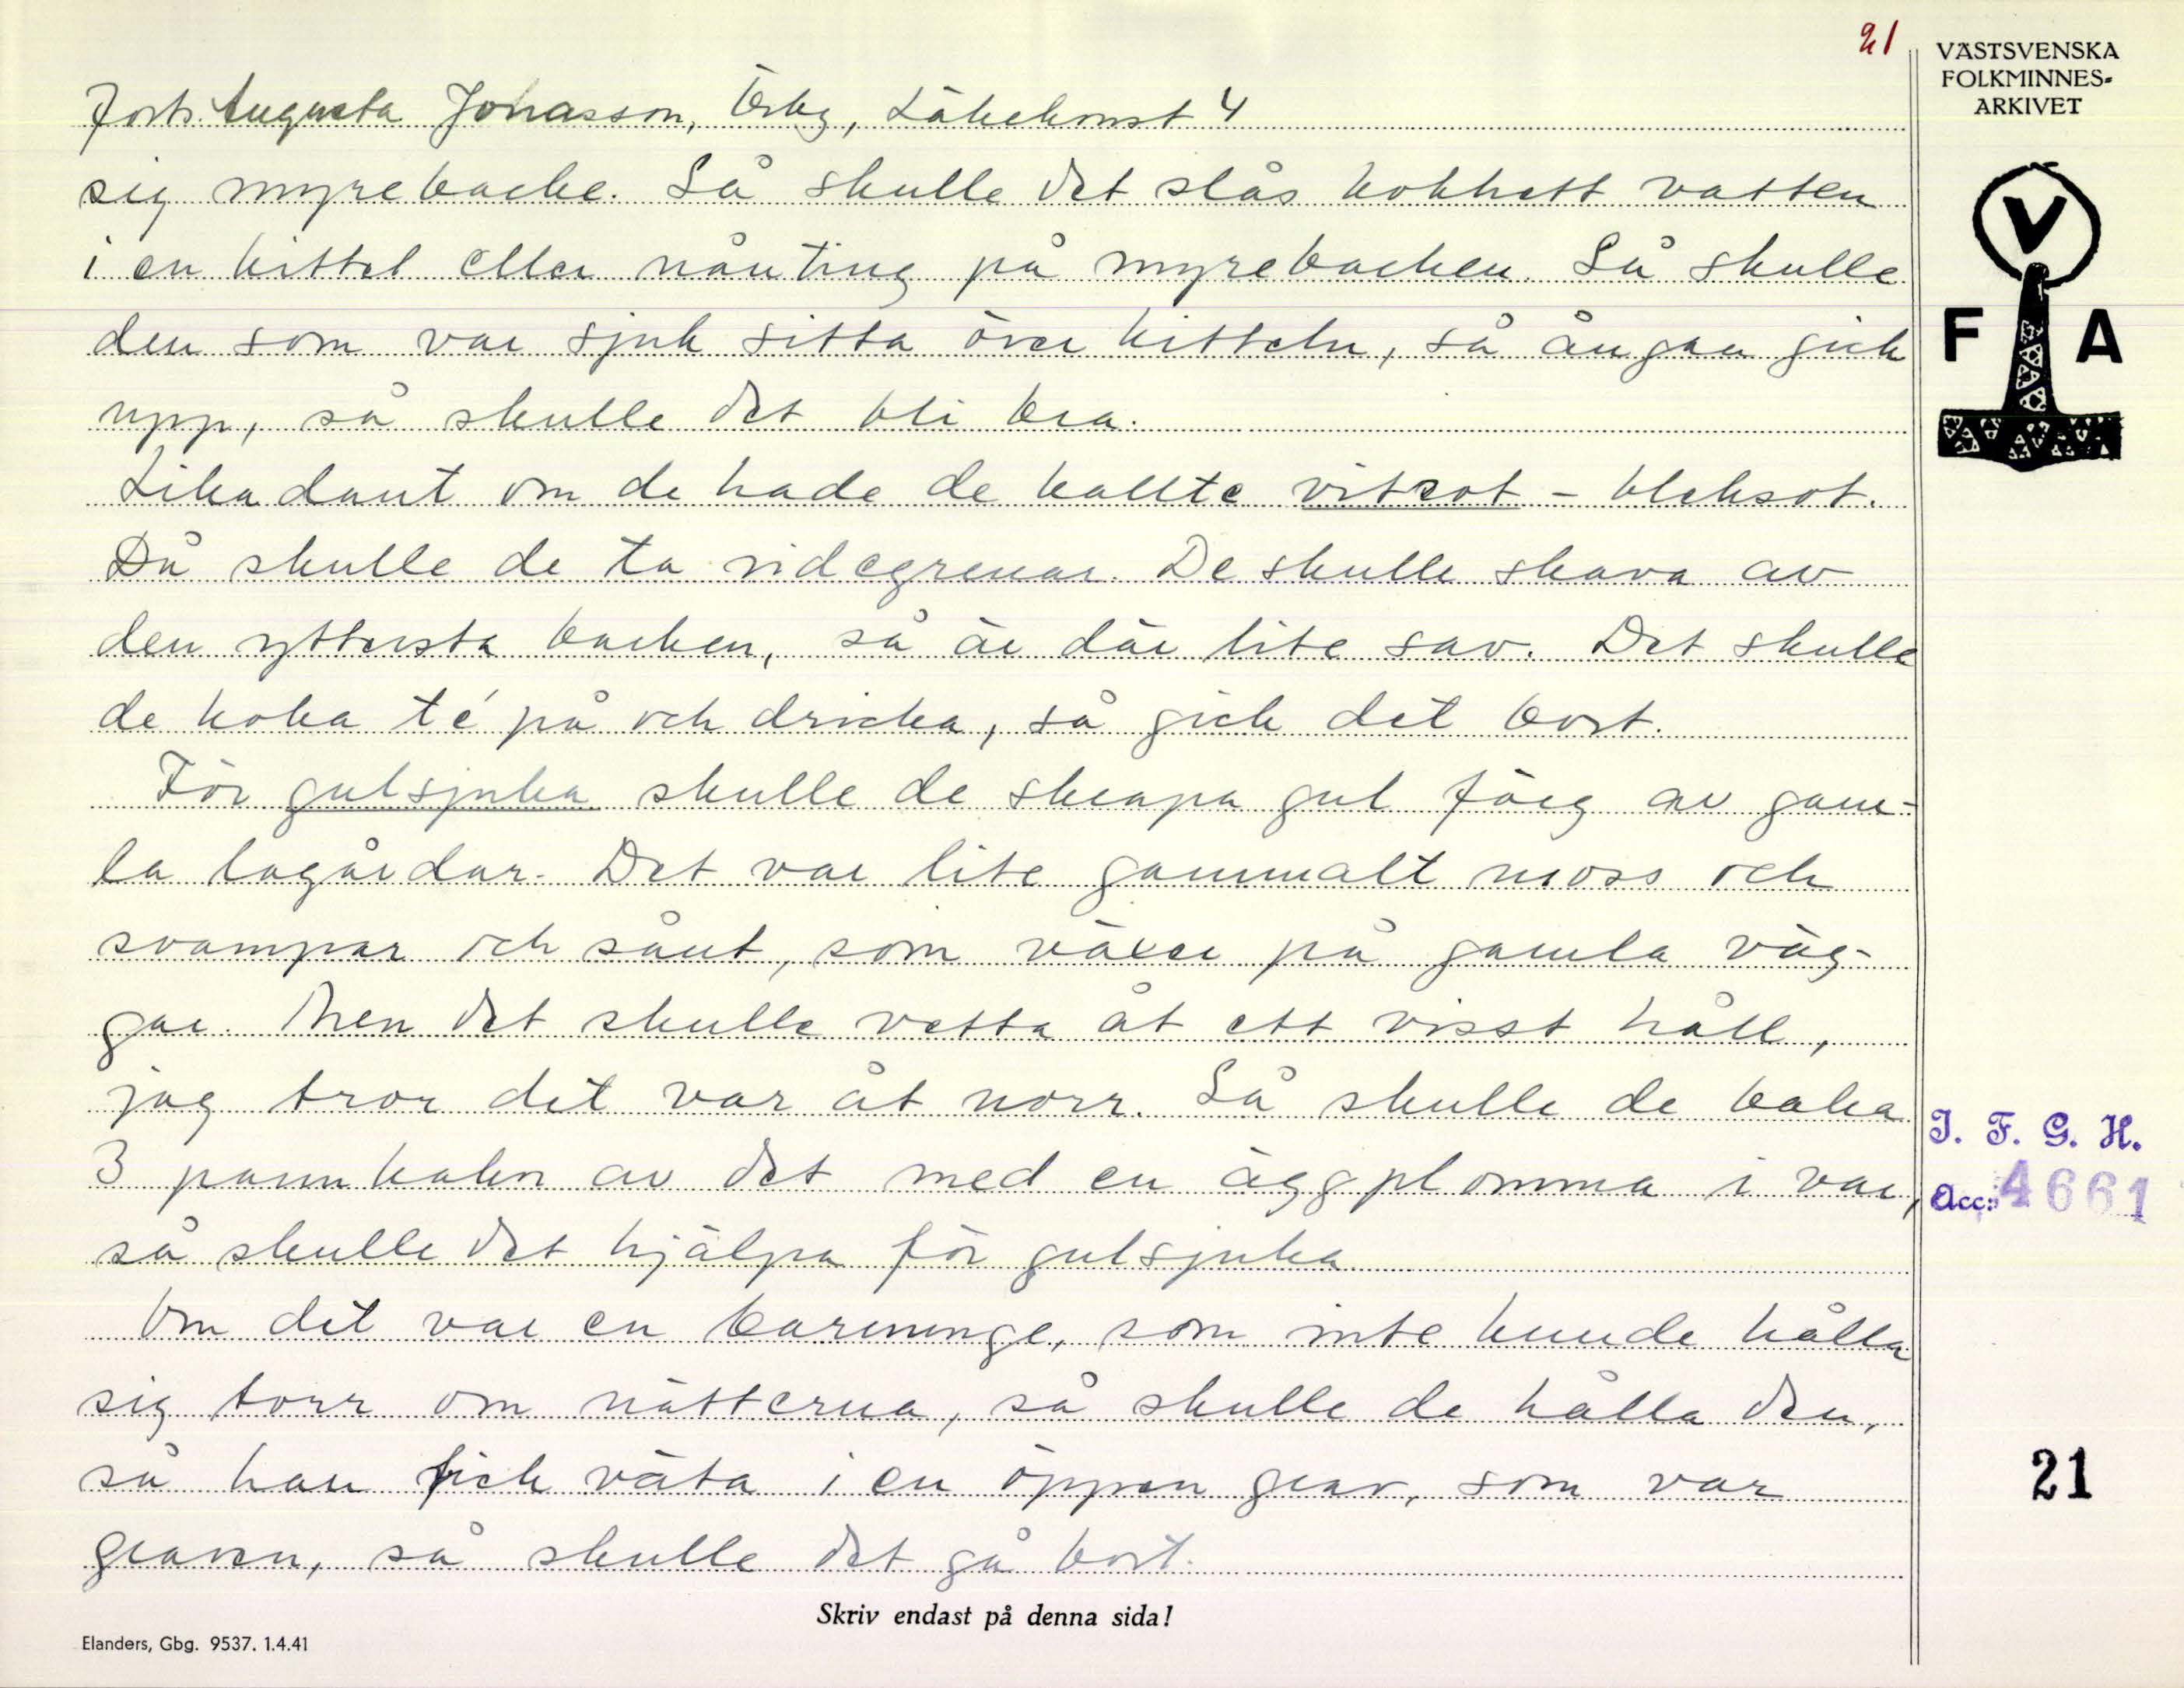 21
VÄSTSVENSKA
FOLKMINNES-
ARKIVET
V
F A
Forts. Augusta Jonasson, Örby, Läkekonst 4
sig myrebacke. Så skulle det slås kokhett vatten
i en kittel eller nånting på myrebacken. Så skulle
den som var sjuk sitta över kitteln, så ångan gick
upp, så skulle det bli bra.
Likadant om de hade de kallte vitsot - bleksot.
Då skulle de ta videgrenar. De skulle skava av
den yttersta barken, så är där lite sav. Det skulle
de koka té på och dricka, så gick det bort.
För gulsjuka skulle de skrapa gul färg av gam-
la lagårdar. Det var lite gammalt moss och
svampar och sånt, som växer på gamla väg-
gar. Men det skulle vetta åt ett visst håll,
jag tror det var åt norr. Så skulle de baka
3 pannkakor av det med en äggplomma i var,
så skulle det hjälpa för gulsjuka.
Om det var en barnunge, som inte kunde hålla
sig torr om nätterna, så skulle de hålla den,
så han fick väta i en öppen grav, som var
graven, så skulle det gå bort.
I. F. G. H.
Acc: 4661
21
Skriv endast på denna sida!
Elanders, Gbg. 9537. 1.4.41